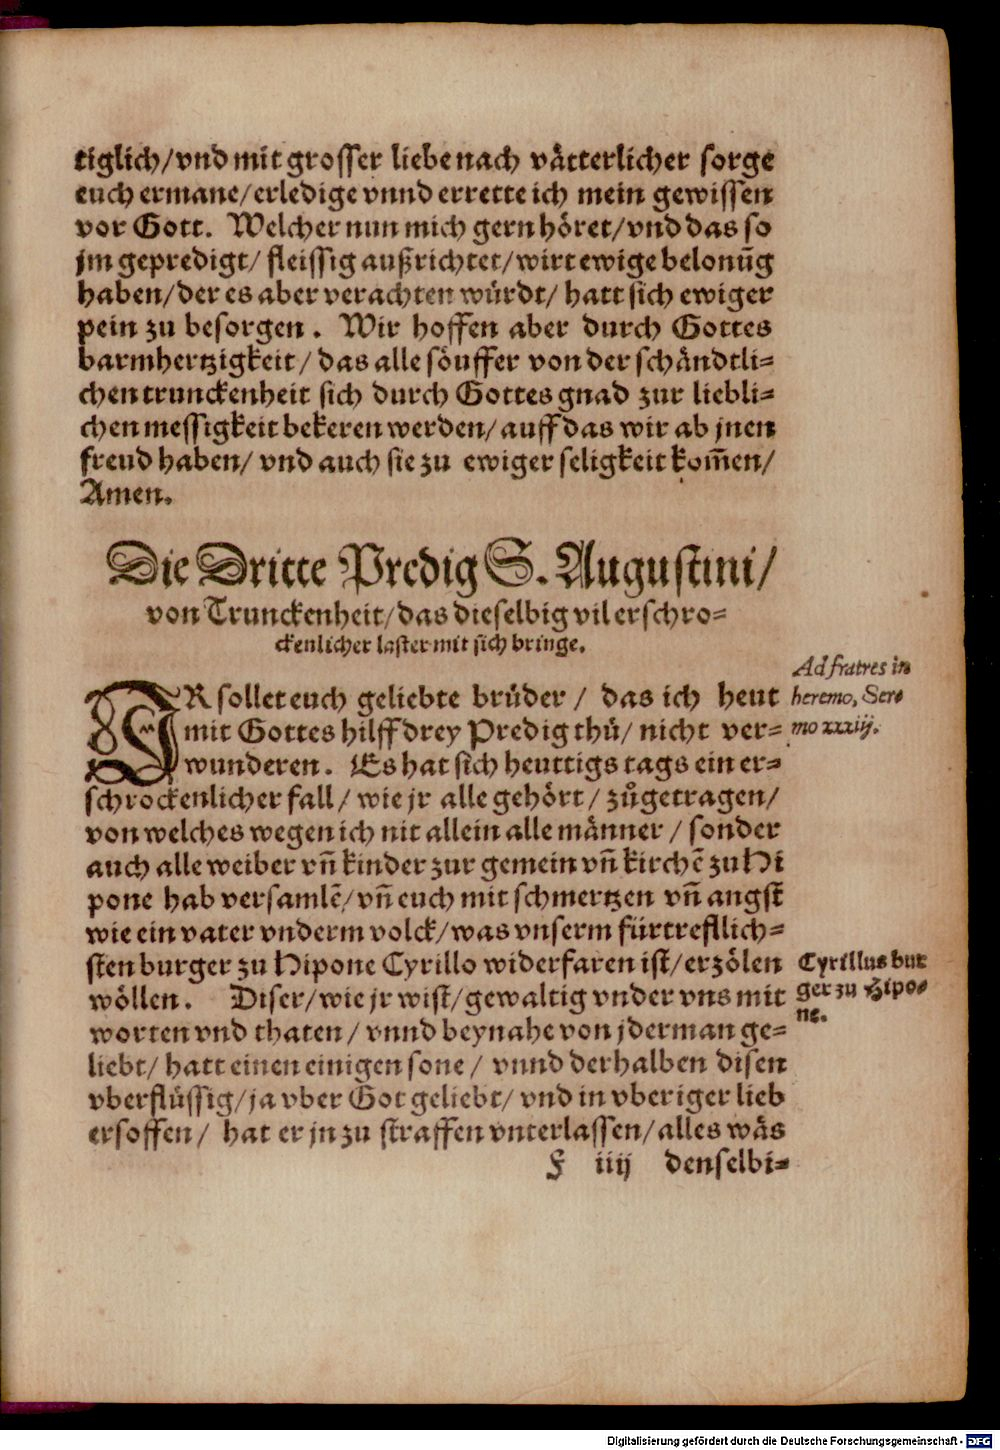 tiglich/vnd mit grosser liebe nach vätterlicher sorge
euch ermane/erledige vnnd errette ich mein gewissen
vor Gott. Welcher nun mich gern höret/vnd das so
jm gepredigt/ fleissig außrichtet/wirt ewige belonūg
haben/der es aber verachten würdt/ hatt sich ewiger
pein zu besorgen. Wir hoffen aber durch Gottes
barmhertzigkeit/ das alle söuffer von der schändtli=
chen trunckenheit sich durch Gottes gnad zur liebli=
chen messigkeit bekeren werden/ auff das wir ab jnen
freud haben/ vnd auch sie zu ewiger seligkeit kom̄en/
Amen.
Die Dritte Predig S. Augustini/
von Trunckenheit/das dieselbig vil erschro=
ckenlicher laster mit sich bringe.
Ad fratres in
heremo, Ser=
mo xxxiij.
IR sollet euch geliebte brüder/ das ich heut
mit Gottes hilff drey Predig thů/ nicht ver=
wunderen. Es hat sich heuttigs tags ein er=
schrockenlicher fall/ wie jr alle gehört/ zůgetragen/
von welches wegen ich nit allein alle männer/ sonder
auch alle weiber vn̄ kinder zur gemein vn̄ kirchē zu Hi
pone hab versamlē/ vn̄ euch mit schmertzen vn̄ angst
wie ein vater vnderm volck/was vnserm fürtrefflich=
sten burger zu Hipone Cyrillo widerfaren ist/erzölen
Cyrillus bur
ger zu Hipo=
ne.
wöllen. Diser/wie jr wist/gewaltig vnder vns mit
worten vnd thaten/ vnnd beynahe von jderman ge=
liebt/ hatt einen einigen sone/ vnnd derhalben disen
vberflüssig/ja vber Got geliebt/ vnd in vberiger lieb
ersoffen/ hat er jn zu straffen vnterlassen/alles wäs
F iiij denselbi=
Digitalisierung gefördert durch die Deutsche Forschungsgemeinschaft - DFG